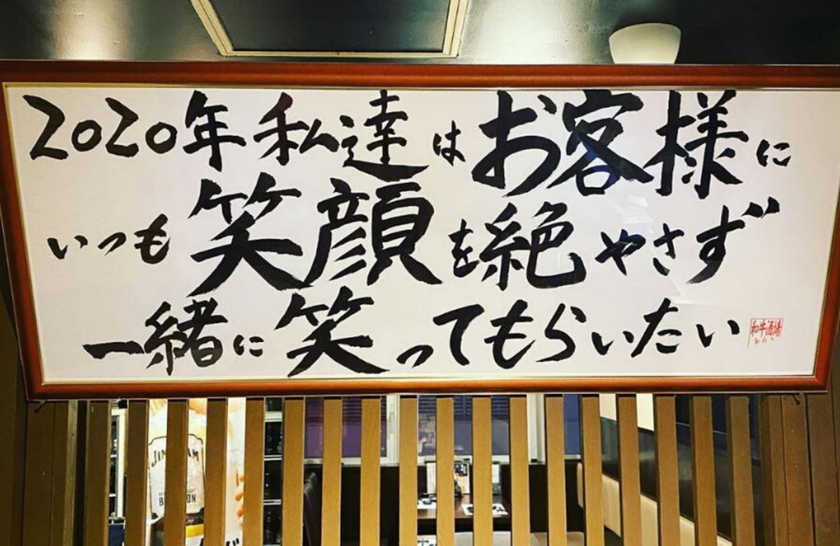 2020年私達はお客様に
いつも笑顔を絶やさず
一緒に笑ってもらいたい
和牛酒場
JIM BEAM